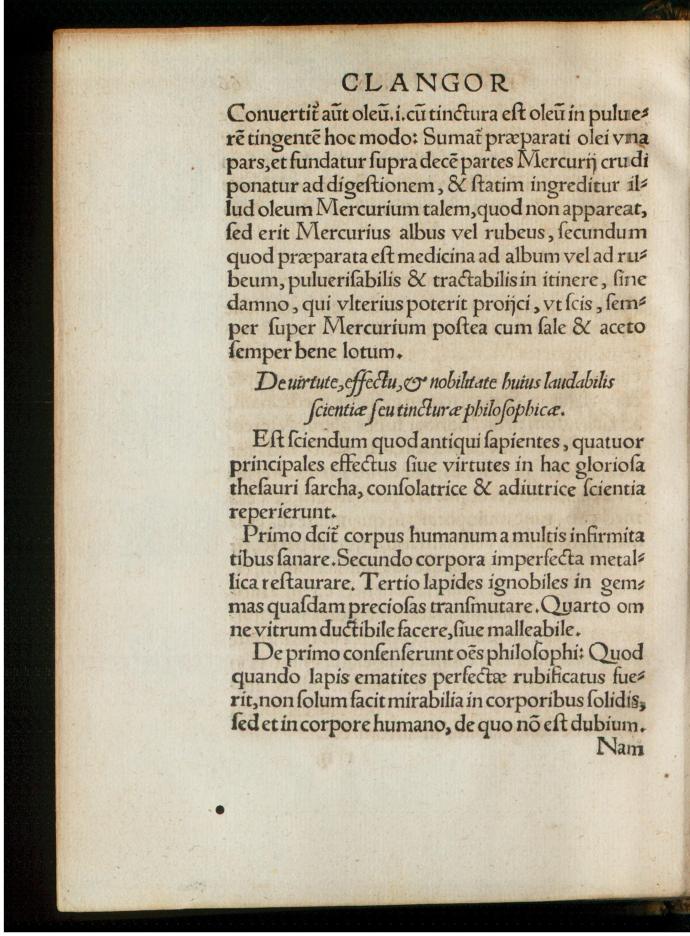 CLANGOR
Conuertit᷑ aūt oleū.i.cū tinctura est oleū in pulue⸗
rē tingentē hoc modo: Sumat᷑ præparati olei vna
pars,et fundatur supra decē partes Mercurij crudi
ponatur ad digestionem, & statim ingreditur il⸗
lud oleum Mercurium talem,quod non appareat,
sed erit Mercurius albus vel rubeus, secundum
quod præparata est medicina ad album vel ad ru⸗
beum, puluerisabilis & tractabilis in itinere, sine
damno, qui vlterius poterit proijci, vt scis, sem⸗
per super Mercurium postea cum sale & aceto
semper bene lotum.
De uirtute, effectu, & nobilitate huius laudabilis
scientiæ seu tincturæ philosophicæ.
Est sciendum quod antiqui sapientes, quatuor
principales effectus siue virtutes in hac gloriosa
thesauri sarcha, consolatrice & adiutrice scientia
reperierunt.
Primo dcit᷑ corpus humanum a multis infirmita
tibus sanare. Secundo corpora imperfecta metal⸗
lica restaurare. Tertio lapides ignobiles in gem⸗
mas quasdam preciosas transmutare. Quarto om
ne vitrum ductibile facere, siue malleabile.
De primo consenserunt oēs philosophi: Quod
quando lapis ematites perfectæ rubificatus fue⸗
rit, non solum facit mirabilia in corporibus solidis,
sed et in corpore humano, de quo nō est dubium.
Nam